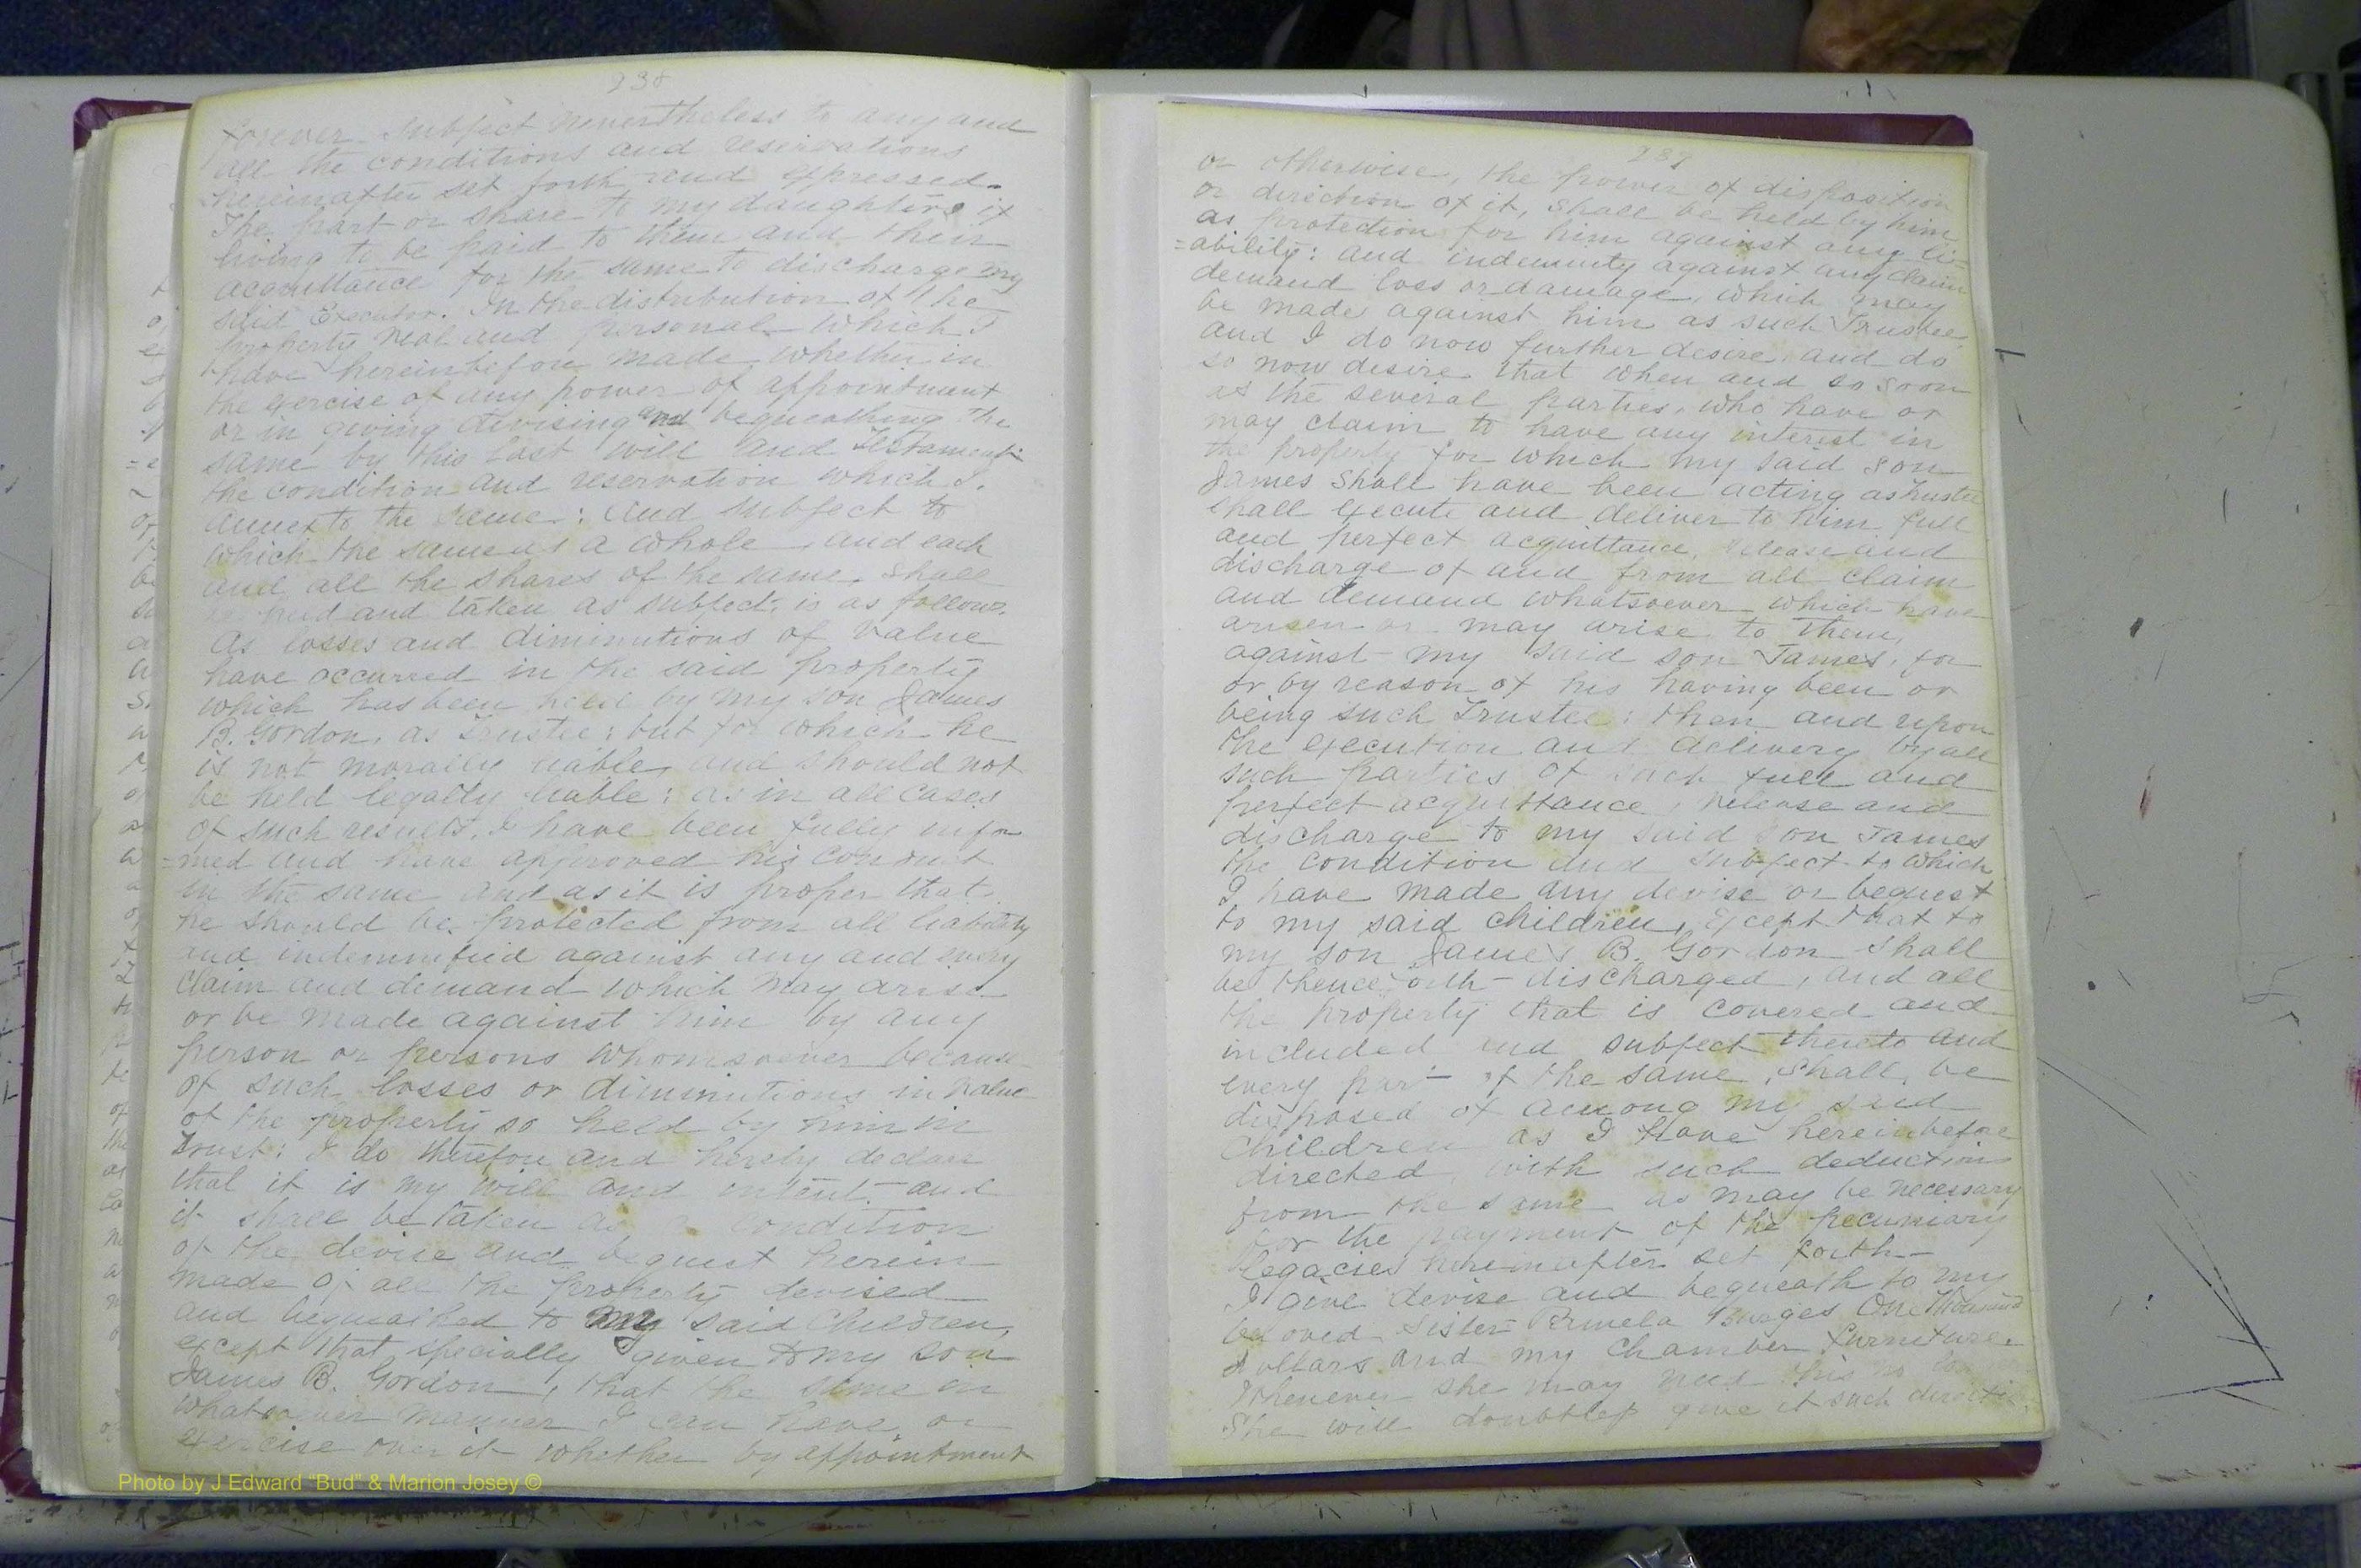 238
forever subject nevertheless to any and
all the conditions and reservations
hereinafter set forth and expressed.
The part or share to my daughters if
living to be paid to them and their
acquittance for the same to discharge my
said Executor. In the distribution of the
property real and personal which I
have hereinbefore made whether in
the exercise of any power of appointment
or in giving devising and bequeathing the
same by this last will and Testament
the condition and reservation which I
annex to the same: and subject to
which the same as a whole, and each
and all the shares of the same, shall
be held and taken as subject, is as follows.
As losses and diminutions of value
have occurred in the said property
which has been held by my son James
B. Gordon, as Trustee; but for which he
is not morally liable, and should not
be held legally liable; as in all cases
of such results, I have been fully infor
=med and have approved his conduct
in the same and as it is proper that
he should be protected from all liability
and indemnified against any and every
claim and demand which may arise
or be made against him by any
person or persons whomsoever because
of such losses or diminutions in value
of the property so held by him in
Trust; I do therefore and hereby declare
that it is my will and intent, and
it shall be taken as a condition
of the devise and bequest herein
made of all the property devised
and bequeathed to my said children,
except that specially given to my son
James B. Gordon, that the same in
whatsoever manner I can have or
exercise over it whether by appointment
or otherwise, the power of disposition
or direction of it, shall be held by him
as protection for him against any li=
=ability: and indemnity against any claim
demand loss or damage, which may
be made against him as such Trustee
and I do now further desire and do
so now desire that when and so soon
as the several parties, who have or
may claim to have any interest in
the property for which my said son
James shall have been acting as Trustee
shall execute and deliver to him full
and perfect acquittance, release and
discharge of and from all claim
and demand whatsoever which have
arisen or may arise to them,
against my said son James, for
or by reason of his having been or
being such Trustee; then and upon
the execution and delivery by all
such parties of such full and
perfect acquittance, release and
discharge to my said son James
the condition and subject to which
I have made any devise or bequest
to my said children, except that to
my son James B. Gordon shall
be thenceforth discharged, and all
the property that is covered and
included and subject thereto and
every part of the same, shall be
disposed of among my said
children as I have hereinbefore
directed, with such deductions
from the same as may be necessary
for the payment of the pecuniary
legacies hereinafter set forth
I give devise and bequeath to my
beloved sister Permela Burges One Thousand
dollars and my chamber furniture.
Whenever she may need this no
She will doubtless give it such direction
Photo by J Edward “Bud” & Marion Josey ©